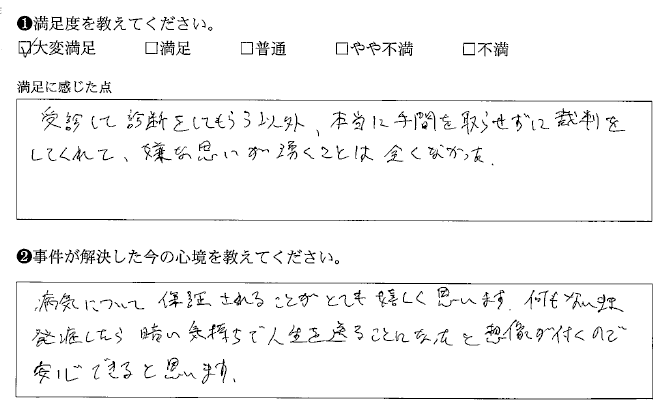 ❶満足度を教えてください。
☑大変満足 □満足 □普通 □やや不満 □不満
満足に感じた点
受診して診断をしてもらう以外、本当に手間を取らせずに裁判を
してくれて、嫌な思いが湧くことは全くなかった。
❷事件が解決した今の心境を教えてください。
病気について保証されることがとても嬉しく思います。何もないまま
発症したら暗い気持ちで人生を送ることになったと想像が付くので
安心できると思います。